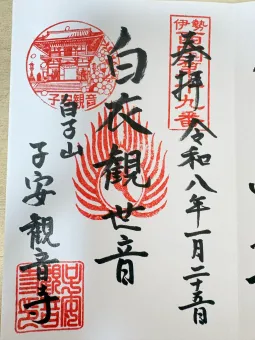 奉拝 令和八年一月二十五日
白衣觀世音
白子山
子安觀音寺
伊勢
九番
子安観音